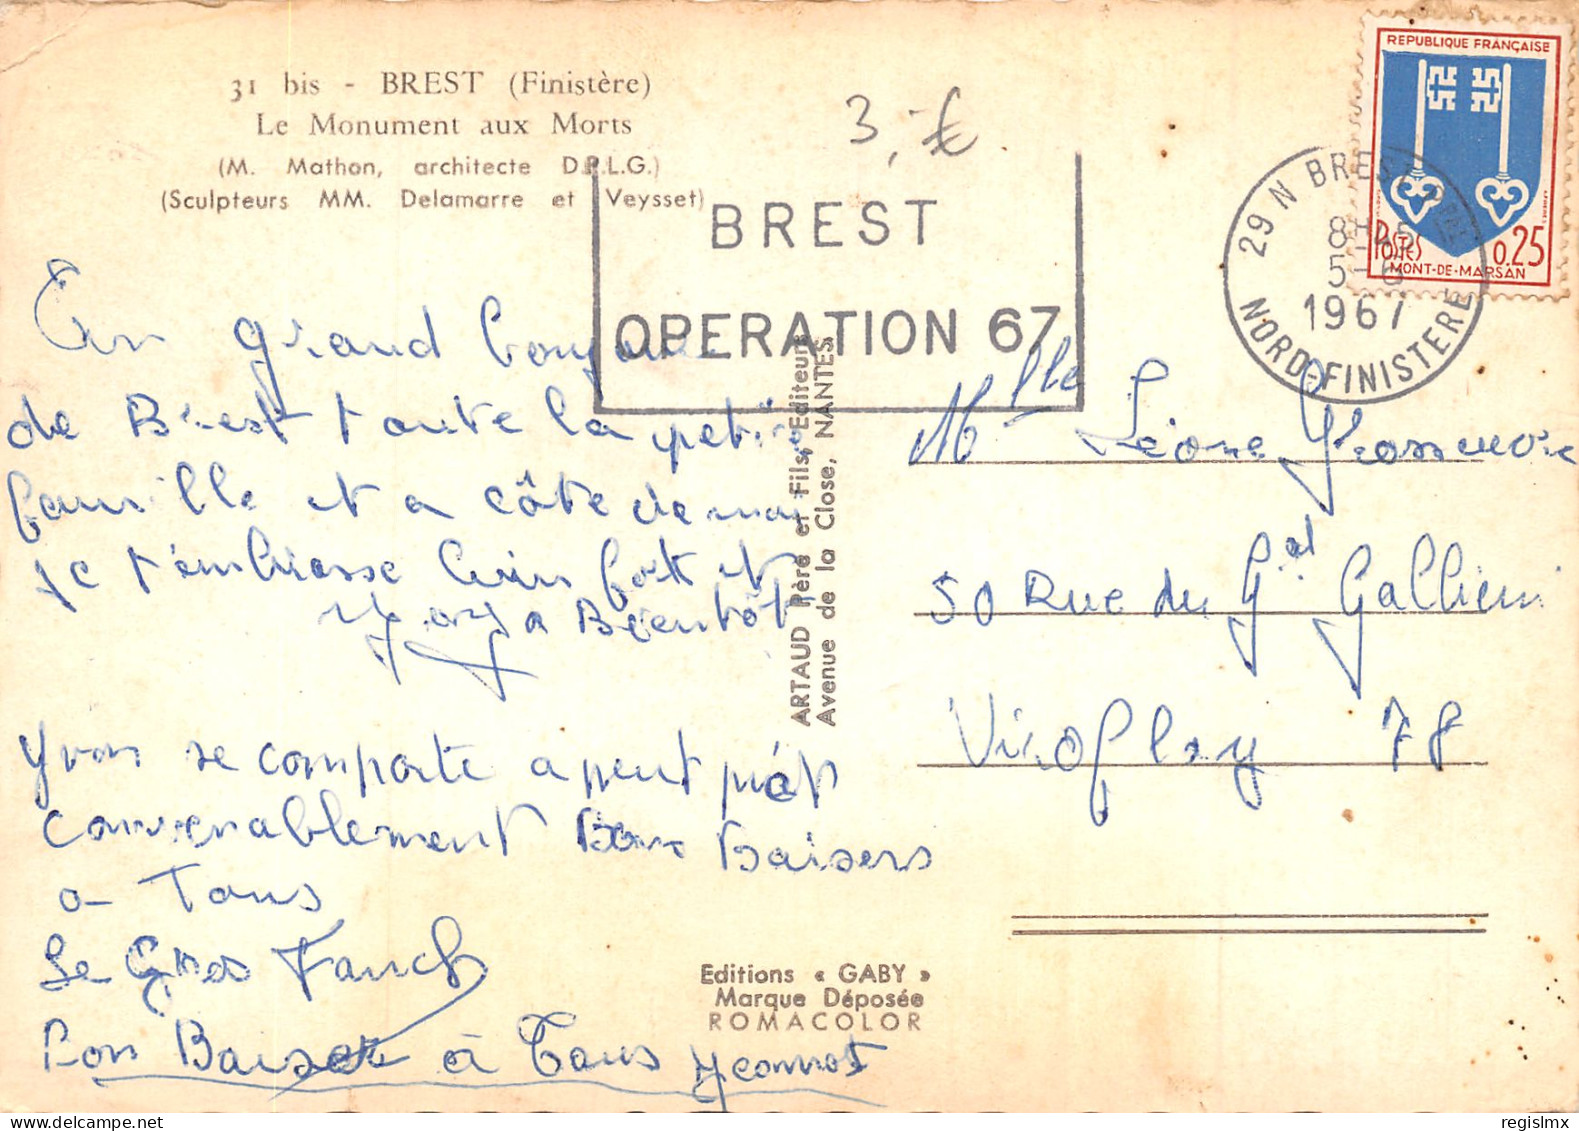 31 bis - BREST (Finistère)
Le Monument aux Morts
(M. Mathon, architecte D.P.L.G.)
(Sculpteurs MM. Delamarre et Veysset)
3,-€
BREST
OPERATION 67
REPUBLIQUE FRANÇAISE
POSTES 0,25
MONT-DE-MARSAN
29 N BREST
8H45
5-6
1967
NORD-FINISTERE
Un grand bonjour
de Brest toute la petite
famille et a côte de moi
je t'embrasse bien fort et
a Bientôt
Yvon se comporte a peut prèt
convenablement Bons Baisers
a Tous
Le Gros Fanch
Bon Baiser à Tous Yeannot
ARTAUD Père et Fils, Editeurs
Avenue de la Close, NANTES
Mlle Léone
50 Rue du Gal Gallieni
Viroflay 78
Editions « GABY »
Marque Déposée
ROMACOLOR
regislmx